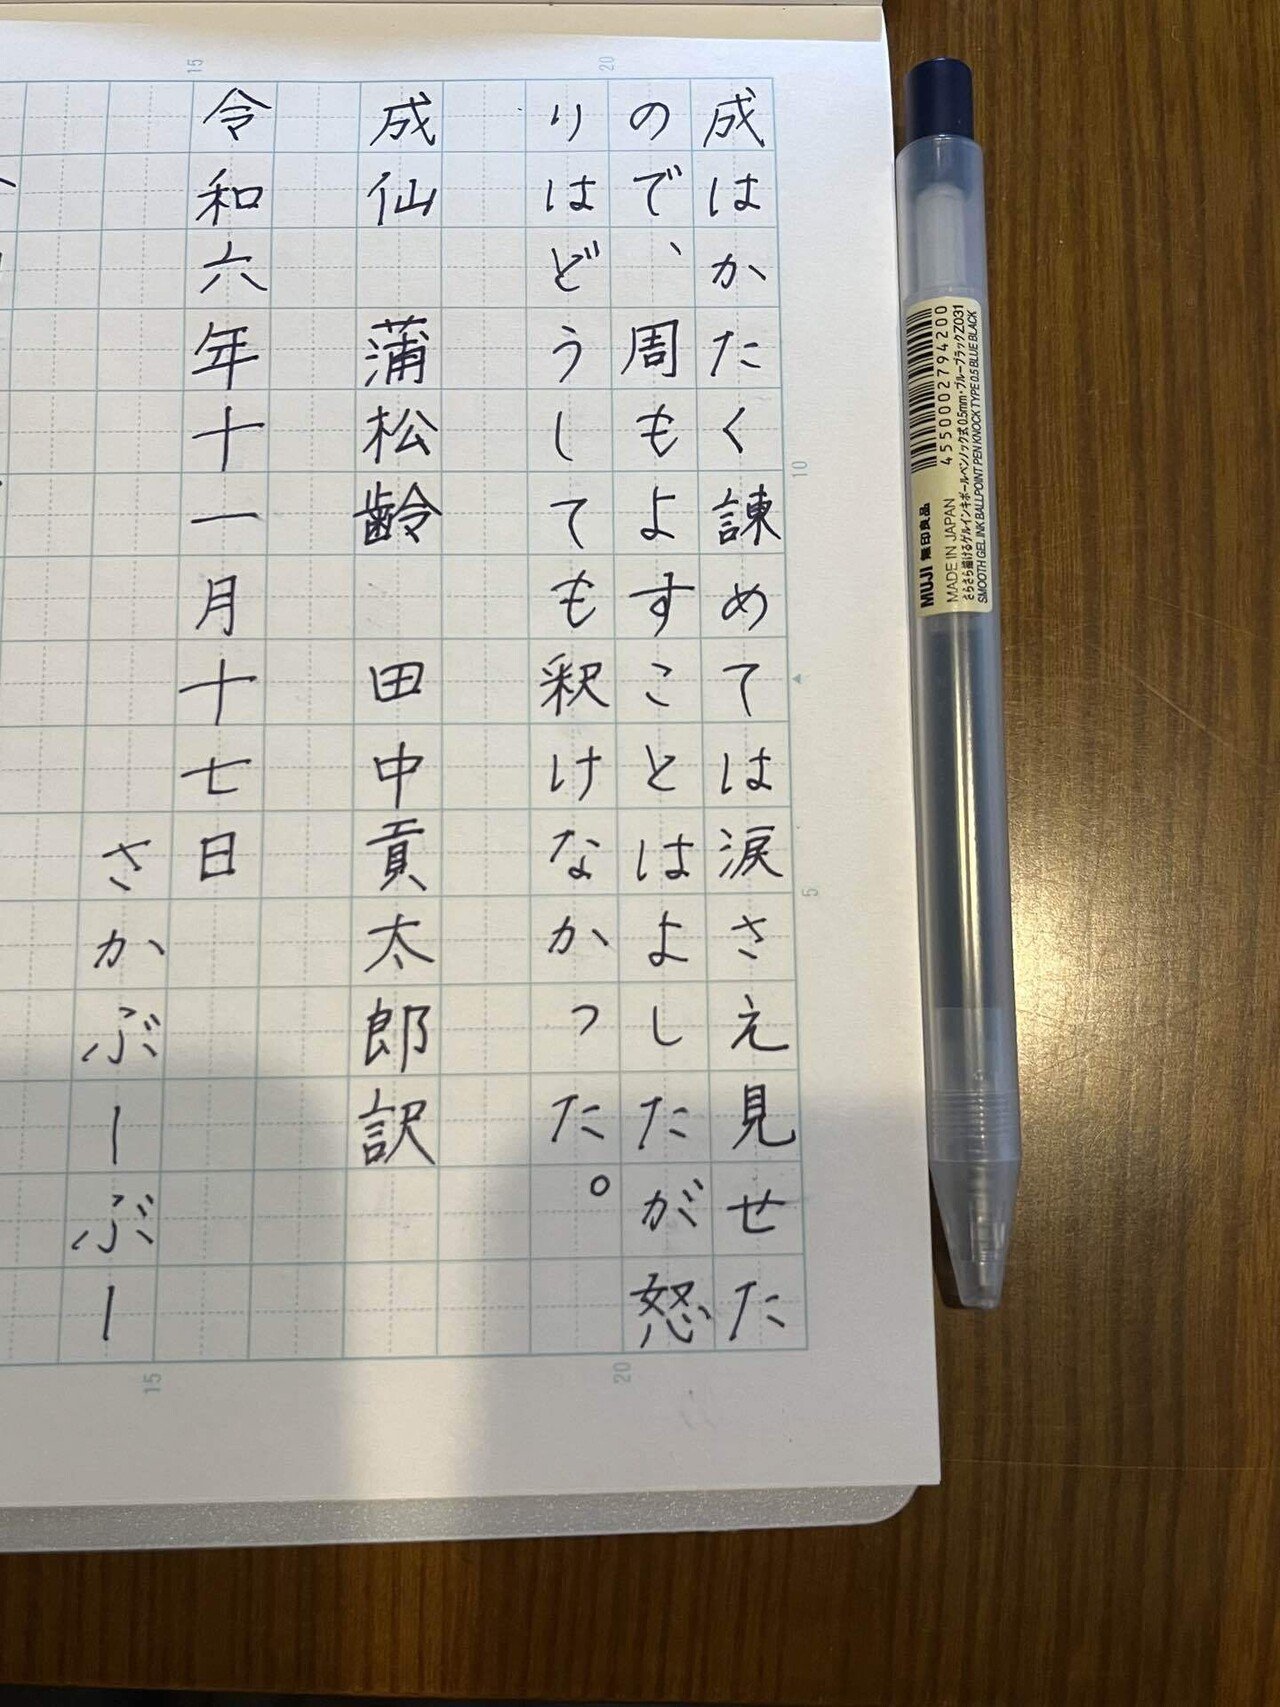 成はかたく諫めては涙さえ見せた
ので、周もよすことはよしたが怒
りはどうしても釈けなかった。
成仙　蒲松齢　田中貢太郎訳
令和六年十一月十七日
さかぶーぶー
15
20
10
5
15
20
4550002794200
MUJI 無印良品
MADE IN JAPAN
さらさら描けるゲルインキボールペンノック式 0.5mm・ブルーブラックZ031
SMOOTH GEL INK BALLPOINT PEN KNOCK TYPE 0.5 BLUE BLACK